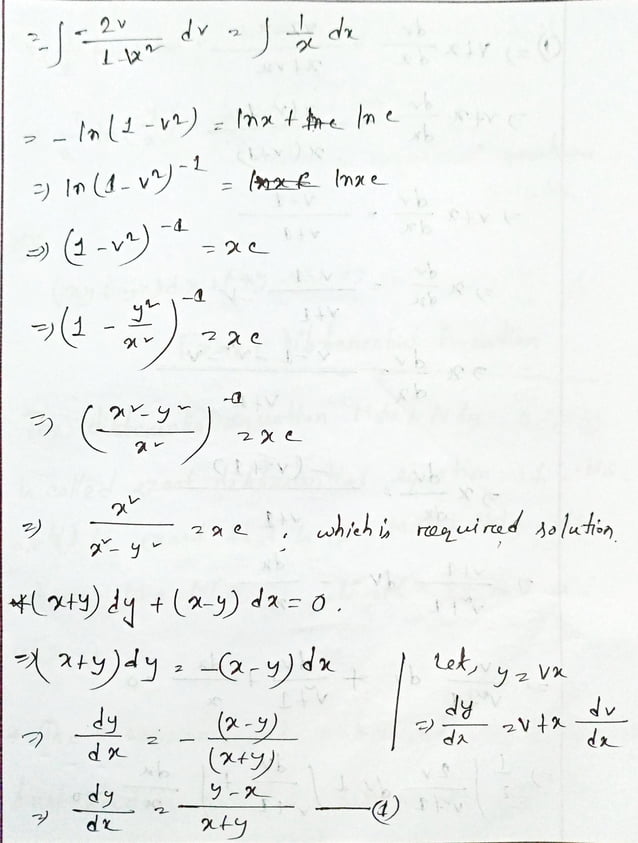 =-∫ -2v/(1-v²) dv = ∫ 1/x dx
= -ln(1-v²) = lnx + ln c
⇒ ln(1-v²)⁻¹ = lnxc
⇒ (1-v²)⁻¹ = xc
⇒ (1 - y²/x²)⁻¹ = xc
⇒ ((x²-y²)/x²)⁻¹ = xc
⇒ x²/(x²-y²) = xc ; which is required solution.
*(x+y)dy + (x-y) dx = 0.
⇒(x+y)dy = -(x-y)dx
let, y = vx
⇒ dy/dx = - (x-y)/(x+y)
⇒ dy/dx = v+x dv/dx
⇒ dy/dx = (y-x)/(x+y) —(1)